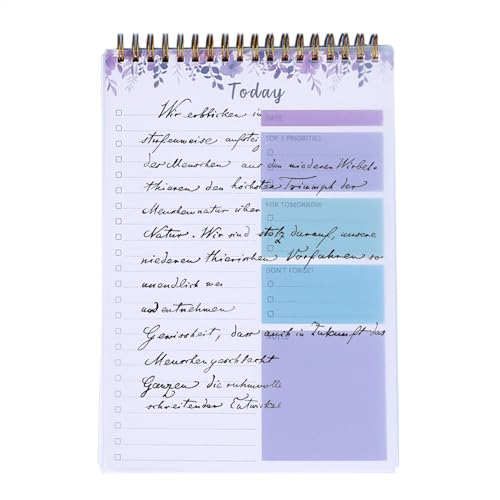 Today
Wir erblicken in
DATE:
stufenweise aufsteig
TOP 3 PRIORITIES
der Menschen aus den niederen Wirbel-
thieren den höchsten Triumph der
Menschennatur über
FOR TOMORROW
Natur. Wir sind stolz darauf, unsere
niederen thierischen Vorfahren so
unendlich wei
DON'T FORGET
und entnehmen
Gewissheit, dass auch in Zukunft das
NOTES
Menschengeschlecht
Ganzen die ruhmvolle
schreitender Entwickel